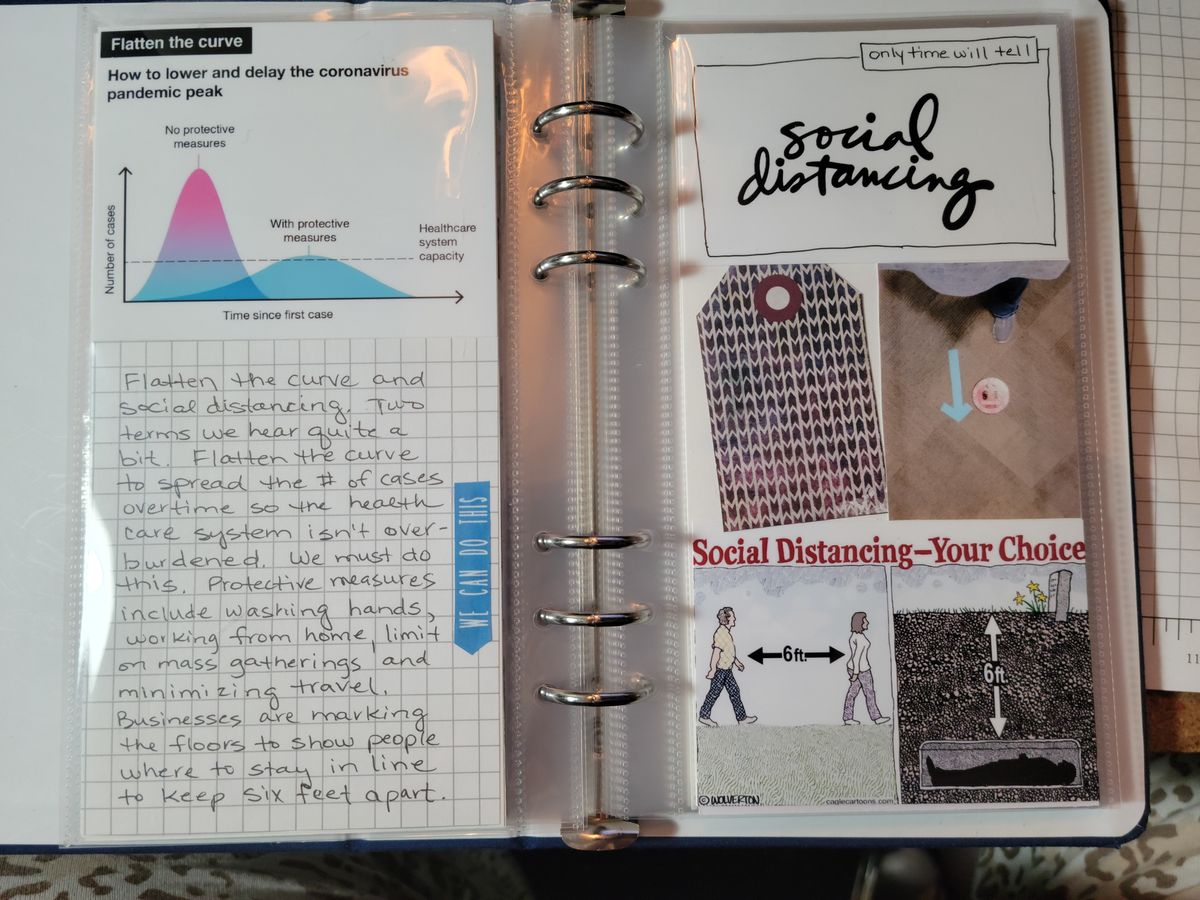 Flatten the curve
How to lower and delay the coronavirus
pandemic peak
No protective
measures
With protective
measures
Healthcare
system
capacity
Number of cases
Time since first case
Flatten the curve and
social distancing. Two
terms we hear quite a
bit. Flatten the curve
to spread the # of cases
overtime so the health
care system isn't over-
burdened. We must do
this. Protective measures
include washing hands,
working from home, limit
on mass gatherings and
minimizing travel.
Businesses are marking
the floors to show people
where to stay in line
to keep six feet apart.
WE CAN DO THIS
only time will tell
social
distancing
Social Distancing–Your Choice
6ft.
6ft
©WOLVERTON
caglecartoons.com
11